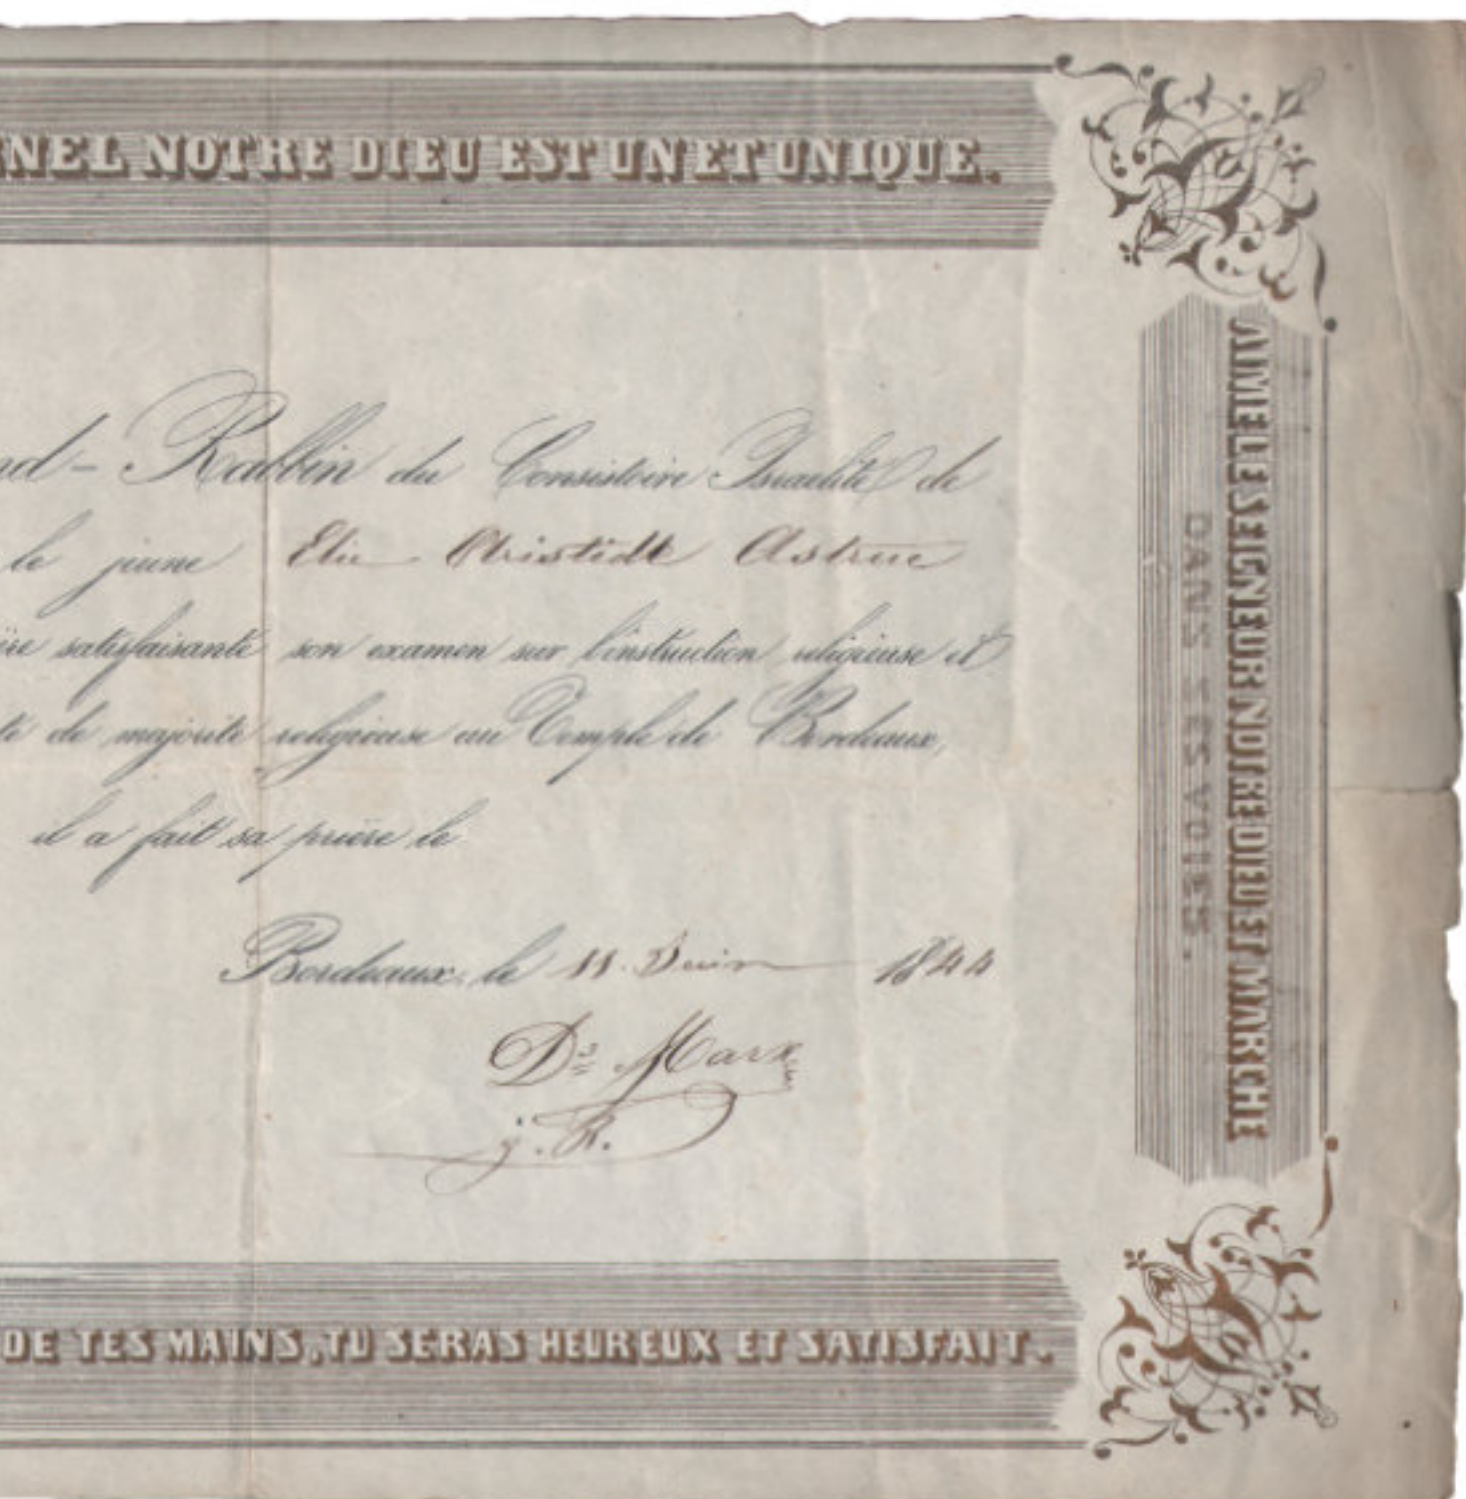 NEL NOTRE DIEU EST UN ET UNIQUE.
nd-Rabbin du Consistoire Israélite de
le jeune Elie Aristide Astruc
ière satisfaisante son examen sur l'instruction religieuse et
te de majorité religieuse au Temple de Bordeaux,
il a fait sa prière le
Bordeaux, le 11. Juin 1844
Dd Marx
g. R.
DE TES MAINS, TU SERAS HEUREUX ET SATISFAIT.
AIME LE SEIGNEUR NOTRE DIEU ET MARCHE
DANS SES VOIES.